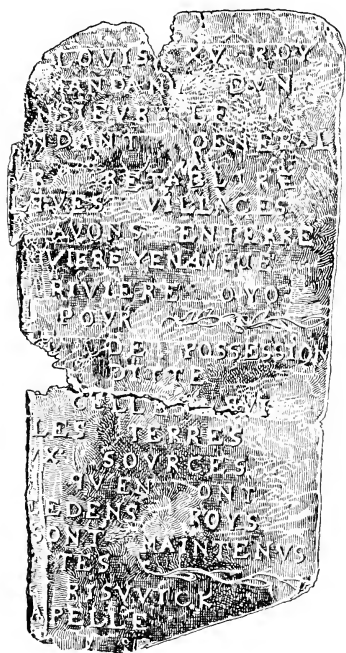 LOVIS XV ROY
MANDANT DVN
NSIEVR LE M
NDANT GENERAL
R RETABLIRE
LQVES VILLAGES
AVONS ENTERRE
IVIERE YENANGUE
RIVIERE OYO
POVR
U DE POSSESSION
DITTE
QVI
LES TERRES
VX SOVRCES
QVEN ONT
CEDENS ROYS
SONT MAINTENVS
TES
RISVVICK
APELLE